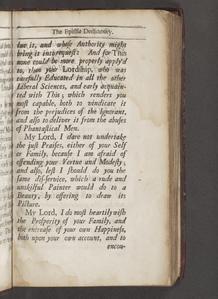 The Epistle Dedicatory.
due it, and whose Authority might
bring it into request: And for This
none could be more properly apply'd
to, than your Lordship, who was
carefully Educated in all the other
Liberal Sciences, and early acquain-
ted with This; which renders you
most capable, both to vindicate it
from the prejudices of the Ignorant,
and also to deliver it from the abuses
of Phantastical Men.
My Lord, I dare not undertake
the just Praises, either of your Self
or Family, because I am afraid of
offending your Vertue and Modesty;
and also, lest I should do you the
same dis-service, which a rude and
unskilful Painter would do to a
Beauty, by offering to draw its
Picture.
My Lord, I do most heartily wish
the Prosperity of your Family, and
the encrease of your own Happiness,
both upon your own account, and to
encou-